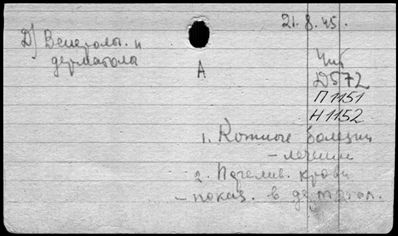 21.8.45.
Д) Венеролог. и
дерматолог
А
Чит
D572
П 1151
Н 1152
1. Кожные болезни
- лечение
2. Перелив. крови
- показ. в дерматол.